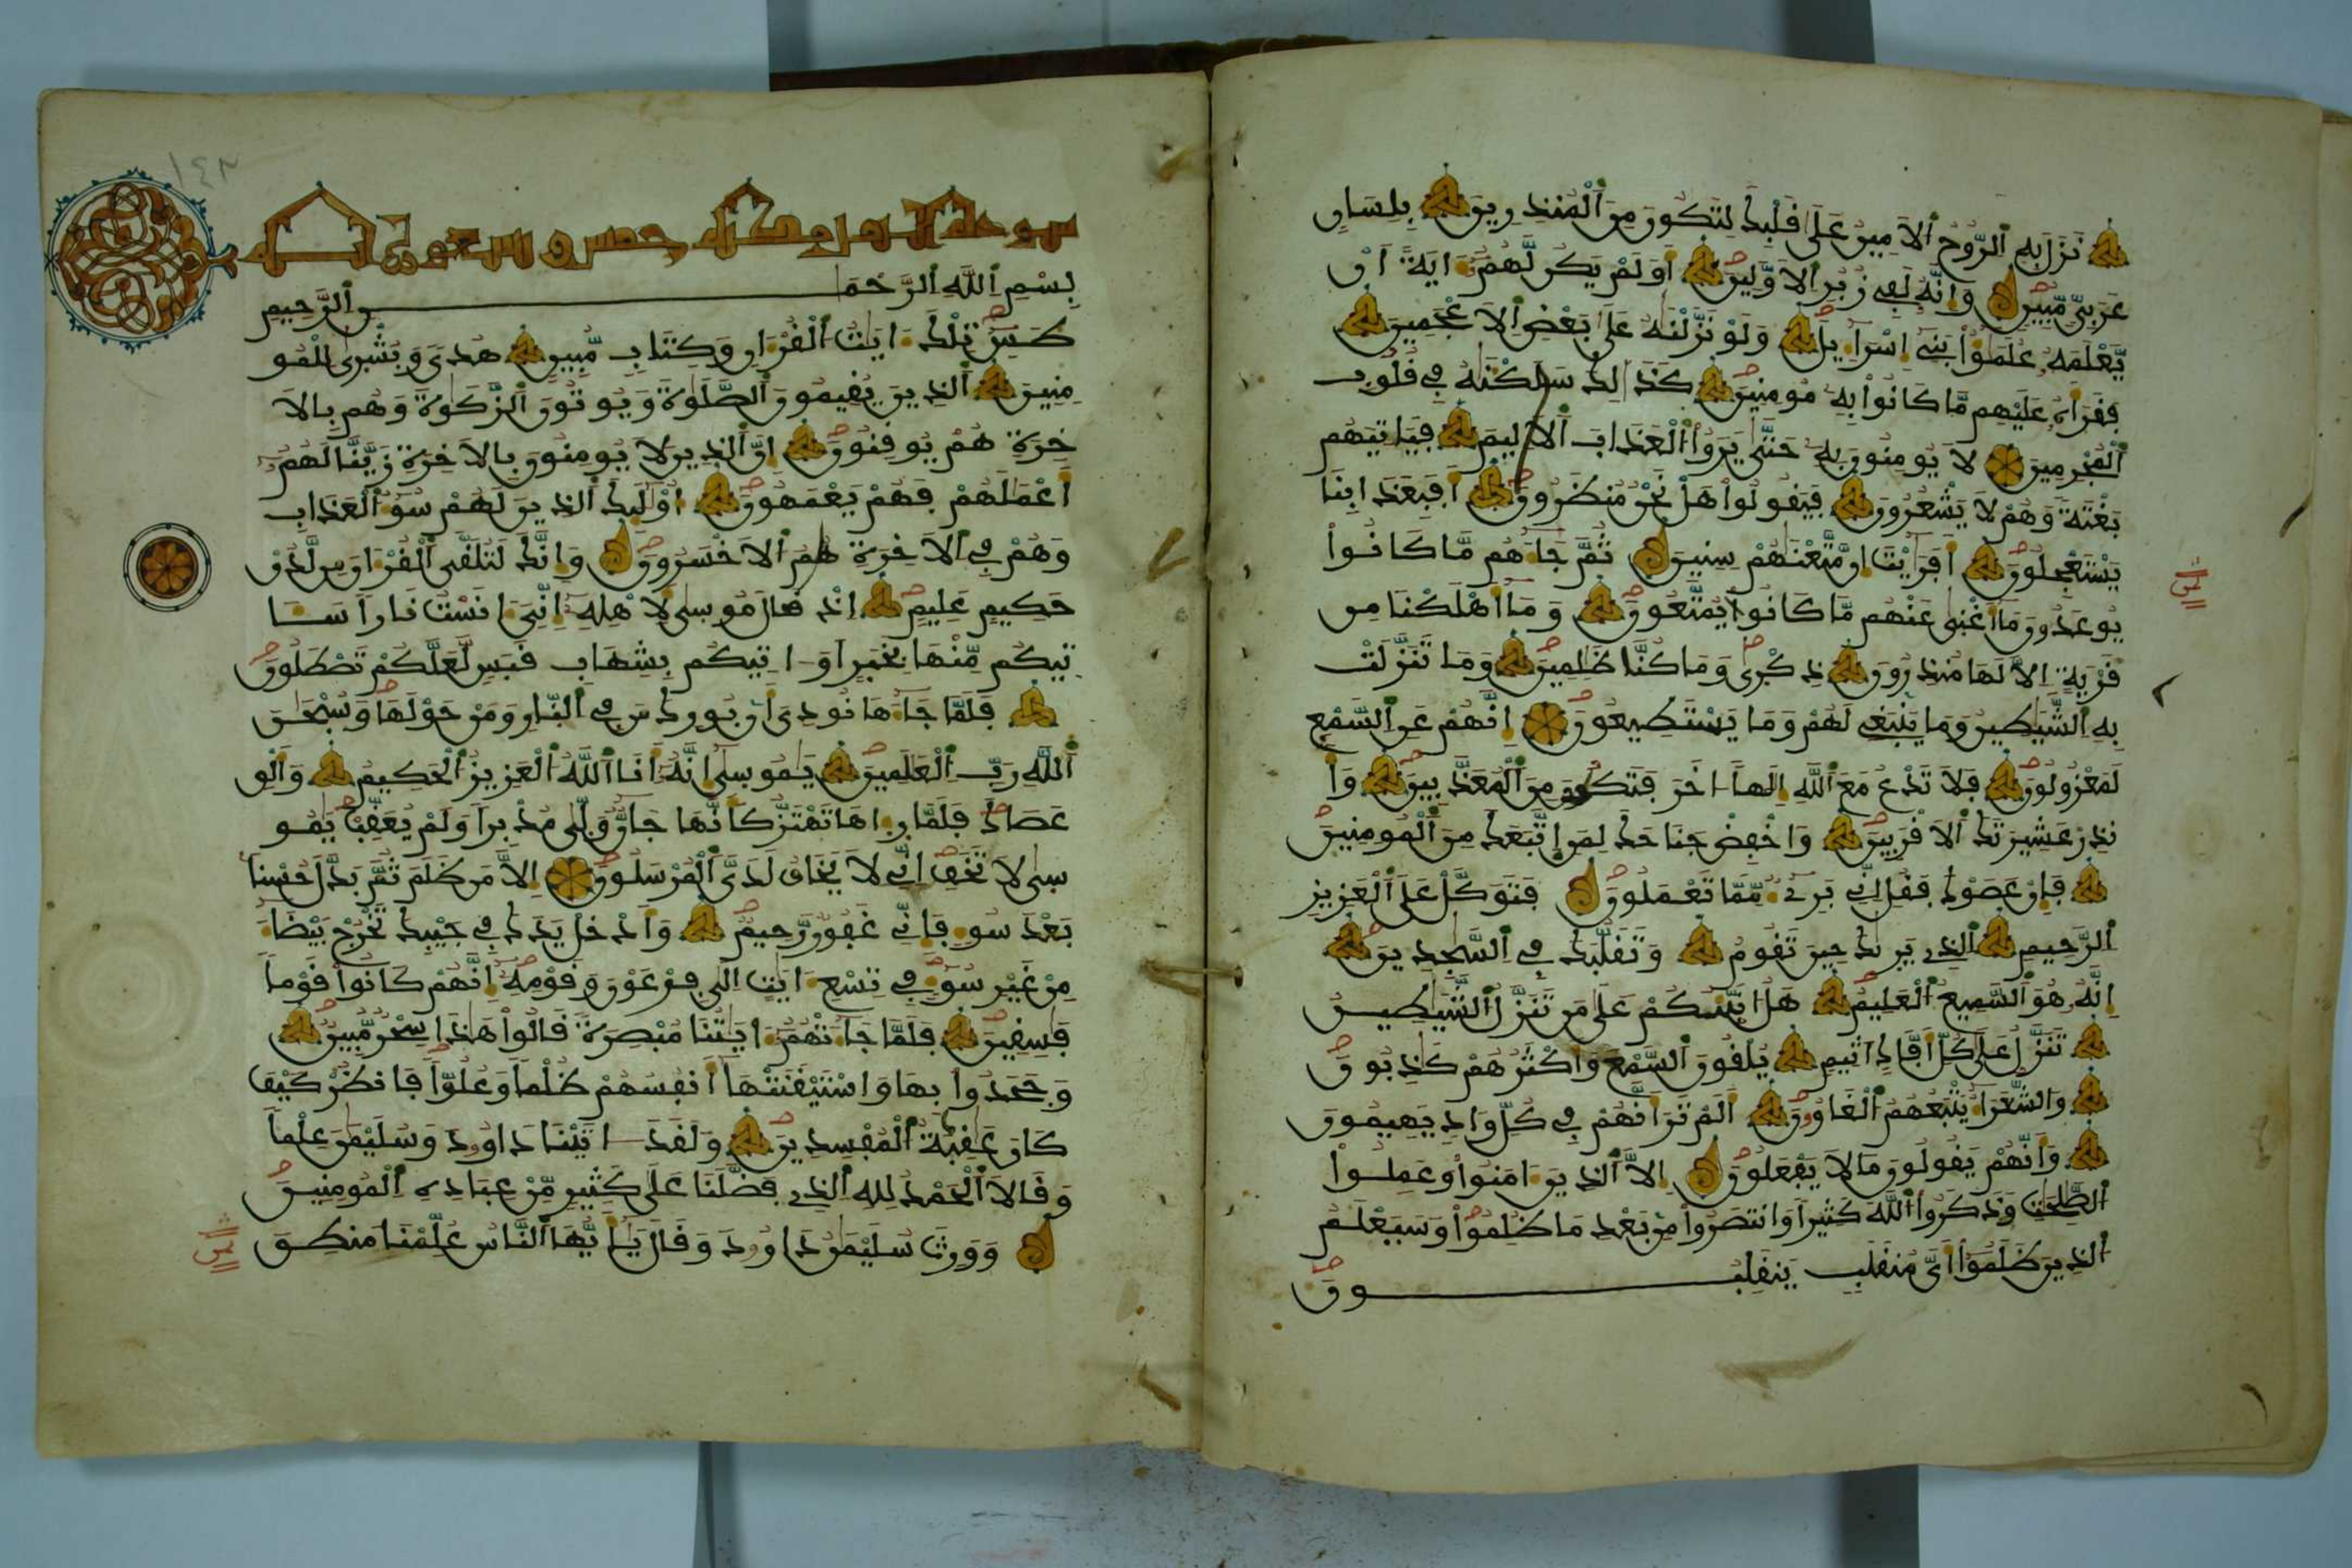 نَزَلَ بِهِ اِ۬لرُّوحُ اُ۬لَامِينُ عَلَىٰ قَلْبِكَ لِتَكُونَ مِنَ اَ۬لْمُنذِرِينَ بِلِسَانٍ
عَرَبِيّٖ مُّبِينٖ وَإِنَّهُۥ لَفِے زُبُرِ اِ۬لَاوَّلِينَ أَوَلَمْ يَكُن لَّهُمُۥٓ ءَايَةً اَنْ
يَّعْلَمَهُۥ عُلَمَٰٓؤُاْ بَنِےٓ إِسْرَآءِيلَ وَلَوْ نَزَّلْنَٰهُ عَلَىٰ بَعْضِ اِ۬لَاعْجَمِينَ
فَقَرَأَهُۥ عَلَيْهِم مَّا كَانُواْ بِهِۦ مُومِنِينَ كَذَٰلِكَ سَلَكْنَٰهُ فِے قُلُوبِ
اِ۬لْمُجْرِمِينَ لَا يُومِنُونَ بِهِۦ حَتَّىٰ يَرَوُاْ اُ۬لْعَذَابَ اَ۬لَالِيمَ فَيَاتِيَهُم
بَغْتَةً وَهُمْ لَا يَشْعُرُونَ فَيَقُولُواْ هَلْ نَحْنُ مُنظَرُونَ أَفَبِعَذَابِنَا
يَسْتَعْجِلُونَ أَفَرَٰيْتَ إِن مَّتَّعْنَٰهُمْ سِنِينَ ثُمَّ جَآءَهُم مَّا كَانُواْ
يُوعَدُونَ مَآ أَغْنَىٰ عَنْهُم مَّا كَانُواْ يُمَتَّعُونَ وَمَآ أَهْلَكْنَا مِن
قَرْيَةٍ اِلَّا لَهَا مُنذِرُونَ ذِكْرَىٰ وَمَا كُنَّا ظَٰلِمِينَ وَمَا تَنَزَّلَتْ
بِهِ اِ۬لشَّيَٰطِينُ وَمَا يَنۢبَغِے لَهُمْ وَمَا يَسْتَطِيعُونَ إِنَّهُمْ عَنِ اِ۬لسَّمْعِ
لَمَعْزُولُونَ فَلَا تَدْعُ مَعَ اَ۬للَّهِ إِلَٰهاً اٰخَرَ فَتَكُونَ مِنَ اَ۬لْمُعَذَّبِينَ وَأَ
نذِرْ عَشِيرَتَكَ اَ۬لَاقْرَبِينَ وَاخْفِضْ جَنَاحَكَ لِمَنِ اِ۪تَّبَعَكَ مِنَ اَ۬لْمُومِنِينَ
فَإِنْ عَصَوْكَ فَقُلِ اِنِّے بَرِےٓءٞ مِّمَّا تَعْمَلُونَ فَتَوَكَّلْ عَلَى اَ۬لْعَزِيزِ
اِ۬لرَّحِيمِ اِ۬لذِے يَرَىٰكَ حِينَ تَقُومُ وَتَقَلُّبَكَ فِے اِ۬لسَّٰجِدِينَ
إِنَّهُۥ هُوَ اَ۬لسَّمِيعُ اُ۬لْعَلِيمُ هَلُ ا۟نَبِّئُكُمْ عَلَىٰ مَن تَنَزَّلُ اُ۬لشَّيَٰطِينُ
تَنَزَّلُ عَلَىٰ كُلِّ أَفَّاكٍ اَثِيمٖ يُلْقُونَ اَ۬لسَّمْعَ وَأَكْثَرُهُمْ كَٰذِبُونَ
وَالشُّعَرَآءُ يَتْبَعُهُمُ اُ۬لْغَاوُۥنَ أَلَمْ تَرَ أَنَّهُمْ فِے كُلِّ وَادٖ يَهِيمُونَ
وَأَنَّهُمْ يَقُولُونَ مَا لَا يَفْعَلُونَ إِلَّا اَ۬لذِينَ ءَامَنُواْ وَعَمِلُواْ
اُ۬لصَّٰلِحَٰتِ وَذَكَرُواْ اُ۬للَّهَ كَثِيراً وَانتَصَرُواْ مِنۢ بَعْدِ مَا ظُلِمُواْ وَسَيَعْلَمُ
اُ۬لذِينَ ظَلَمُوٓاْ أَيَّ مُنقَلَبٖ يَنقَلِبُونَ
سورة النمل مكية خمس وتسعون آية
بِسْمِ اِ۬للَّهِ اِ۬لرَّحْمَٰنِ اِ۬لرَّحِيمِ
طَسِٓ تِلْكَ ءَايَٰتُ اُ۬لْقُرْءَانِ وَكِتَابٖ مُّبِينٍ هُدىٗ وَبُشْرَىٰ لِلْمُو
مِنِينَ اَ۬لذِينَ يُقِيمُونَ اَ۬لصَّلَوٰةَ وَيُوتُونَ اَ۬لزَّكَوٰةَ وَهُم بِالَا
خِرَةِ هُمْ يُوقِنُونَ إِنَّ اَ۬لذِينَ لَا يُومِنُونَ بِالَاخِرَةِ زَيَّنَّا لَهُمُۥٓ
أَعْمَٰلَهُمْ فَهُمْ يَعْمَهُونَ أُوْلَٰٓئِكَ اَ۬لذِينَ لَهُمْ سُوٓءُ اُ۬لْعَذَابِ
وَهُمْ فِے اِ۬لَاخِرَةِ هُمُ اُ۬لَاخْسَرُونَ وَإِنَّكَ لَتُلَقَّى اَ۬لْقُرْءَانَ مِن لَّدُنْ
حَكِيمٍ عَلِيمٍ اِذْ قَالَ مُوسَىٰ لِأَهْلِهِۦٓ إِنِّيَ ءَانَسْتُ نَاراً سَـَٔا
تِيكُم مِّنْهَا بِخَبَرٍ اَوَ اٰتِيكُم بِشِهَابِ قَبَسٖ لَّعَلَّكُمْ تَصْطَلُونَ
فَلَمَّا جَآءَهَا نُودِيَ أَنۢ بُورِكَ مَن فِے اِ۬لنَّارِ وَمَنْ حَوْلَهَا وَسُبْحَٰنَ
اَ۬للَّهِ رَبِّ اِ۬لْعَٰلَمِينَ يَٰمُوسَىٰٓ إِنَّهُۥٓ أَنَا اَ۬للَّهُ اُ۬لْعَزِيزُ اُ۬لْحَكِيمُ وَأَلْقِ
عَصَاكَ فَلَمَّا رَءَاهَا تَهْتَزُّ كَأَنَّهَا جَآنّٞ وَلَّىٰ مُدْبِراً وَلَمْ يُعَقِّبْ يَٰمُو
سَىٰ لَا تَخَفِ اِنِّے لَا يَخَافُ لَدَيَّ اَ۬لْمُرْسَلُونَ إِلَّا مَن ظَلَمَ ثُمَّ بَدَّلَ حُسْناَۢ
بَعْدَ سُوٓءٖ فَإِنِّے غَفُورٞ رَّحِيمٞ وَأَدْخِلْ يَدَكَ فِے جَيْبِكَ تَخْرُجْ بَيْضَآءَ
مِنْ غَيْرِ سُوٓءٖ فِے تِسْعِ ءَايَٰتٍ اِلَىٰ فِرْعَوْنَ وَقَوْمِهِۦٓ إِنَّهُمْ كَانُواْ قَوْماٗ
فَٰسِقِينَ فَلَمَّا جَآءَتْهُمُۥٓ ءَايَٰتُنَا مُبْصِرَةٗ قَالُواْ هَٰذَا سِحْرٞ مُّبِينٞ
وَجَحَدُواْ بِهَا وَاسْتَيْقَنَتْهَآ أَنفُسُهُمْ ظُلْماٗ وَعُلُوّاٗ فَانظُرْ كَيْفَ
كَانَ عَٰقِبَةُ اُ۬لْمُفْسِدِينَ وَلَقَدَ اٰتَيْنَا دَاوُۥدَ وَسُلَيْمَٰنَ عِلْماٗ
وَقَالَا اَ۬لْحَمْدُ لِلهِ اِ۬لذِے فَضَّلَنَا عَلَىٰ كَثِيرٖ مِّنْ عِبَادِهِ اِ۬لْمُومِنِينَ
وَوَرِثَ سُلَيْمَٰنُ دَاوُۥدَ وَقَالَ يَٰٓأَيُّهَا اَ۬لنَّاسُ عُلِّمْنَا مَنطِقَ
١٤٢